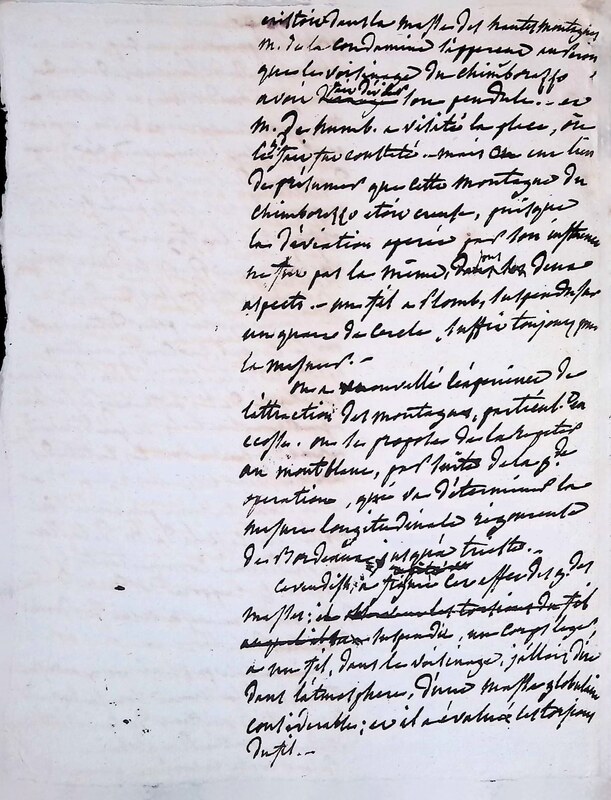 existoit dans la masse des hautes montagnes
M. de la Condamine s'apperçut au Perou
que le voisinage du Chimborazzo
avoit fait dévier son pendule. - et
M. de Humb. a visité la place, où
le fait fut constaté. - mais on eut lieu
de présumer que cette montagne du
Chimborazzo étoit creuse, puisque
la déviation operée sur son instrument
ne fut pas la même, dans les deux
aspects. - un fil a Plomb, suspendu sur
un quart de cercle, suffit toujours pour
la mesurer. -
on a renouvellé l'expérience de
l'attraction des montagnes, particul. en
ecosse. on se propose de la repeter
au montblanc, par suite de la gde
operation, qui va déterminer la
mesure longitudinale rigoureuse
de Bordeaux jusqu'à trieste. -
Cavendish, a cet effet des gdes
masses; et du fil
suspendit, un corps leger
à un fil, dans le voisinage, j'allois dire
dans l'atmosphere, d'une masse globulaire
considerable; et il a évalué les torsions
du fil. -